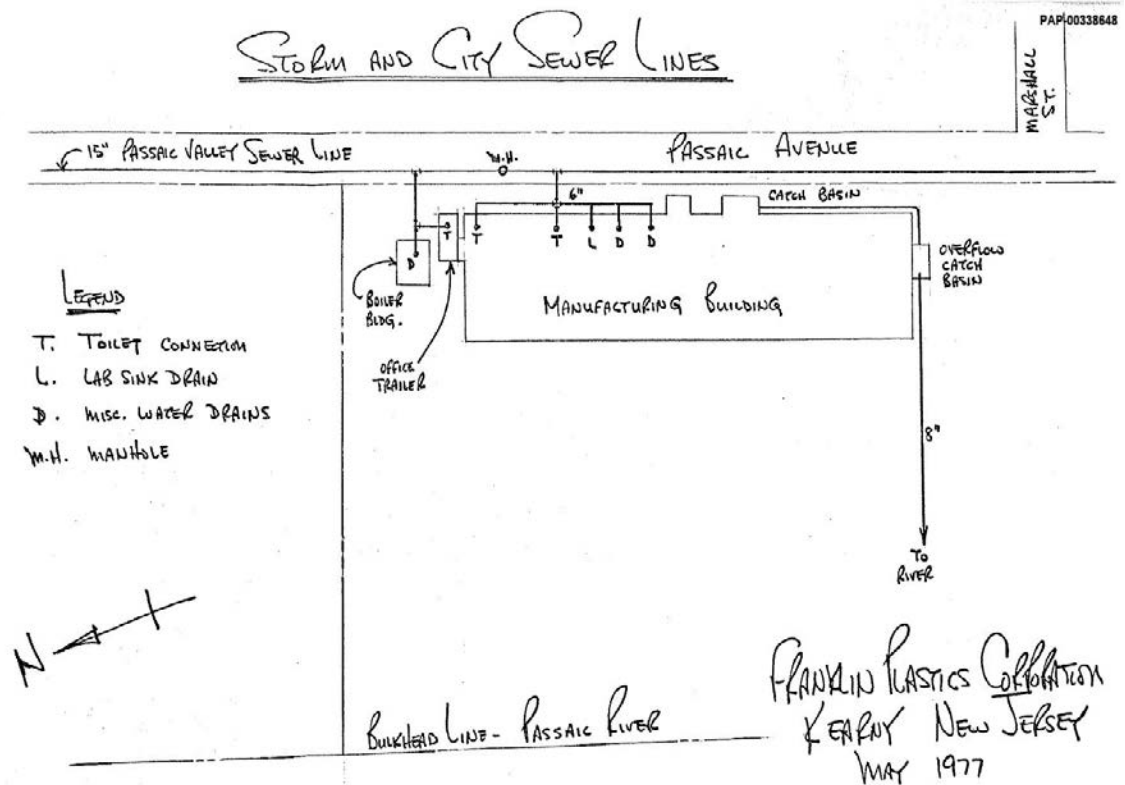 PAP-00338648
STORM AND CITY SEWER LINES
MARSHALL
ST.
15" PASSAIC VALLEY SEWER LINE
M.H.
PASSAIC AVENUE
6"
CATCH BASIN
T
T
T
L
D
D
D
OVERFLOW
CATCH
BASIN
BOILER
BLDG.
MANUFACTURING BUILDING
OFFICE
TRAILER
LEGEND
T. TOILET CONNECTION
L. LAB SINK DRAIN
D. MISC. WATER DRAINS
M.H. MANHOLE
8"
TO
RIVER
N
BULKHEAD LINE - PASSAIC RIVER
FRANKLIN PLASTICS CORPORATION
KEARNY NEW JERSEY
MAY 1977